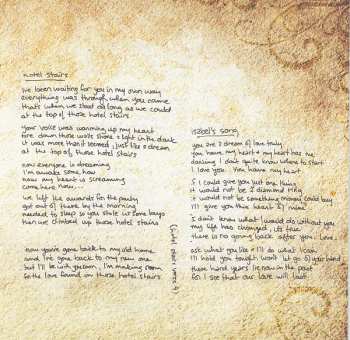 Hotel stairs
I've been waiting for you in my own way
everything was through when you came
that's when we stood as long as we could
at the top of those hotel stairs
Your voice was warming up my heart
fire down those walls shone a light in the dark
it was more than it seemed, just like a dream
at the top of those hotel stairs
now everyone is dreaming
I'm awake some how
now my heart is screaming
come here now...
we left like children in the party
got out of there by the morning
needed to sleep so you stole us some keys
then we climbed up those hotel stairs
now you've gone back to my old home
and I've gone back to my new one
but I'll be with you soon, I'm making room
for the love found on those hotel stairs
(Hotel stairs verse 4)
Isabel's song
you are a dream of love truly
you have my heart & my heart has me
darling I don't quite know where to start
I love you. You have my heart
if I could give you just one thing
it would not be a diamond ring
it would not be something money could buy
I'll give you this heart of mine
I don't know what I would do without you
my life has changed, it's true
there is no going back after you, I love
ask what you like & I'll do what I can
I'll hold you tonight won't let go of your hand
those hard years lie now in the past
for I see that our love will last